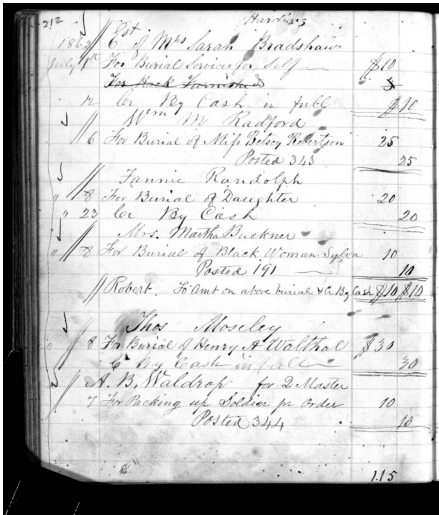 212 Harding
Est
1862 6 of Mrs Sarah Bradshaw
July 1st For Burial Services for Self $10
For Hack Furnished 3
12 Cr By Cash in full $10
Wm M Radford
6 For Burial of Miss Betsey Robertson 25
Posted 343 25
Fannie Randolph
" 8 For Burial of Daughter 20
" 23 Cr By Cash 20
Mrs. Martha Buckner
" 8 For Burial of Black Woman Sylva 10
Posted 191 10
Robert. To Amt on above burial & Cr By Cash $10 $10
Thos Moseley
" 8 For Burial of Henry A Walthal $30
Cr By Cash in full 30
A. B. Waldrop for 2 Master
" 7 For Packing up Soldier pr Order 10
Posted 344 10
115